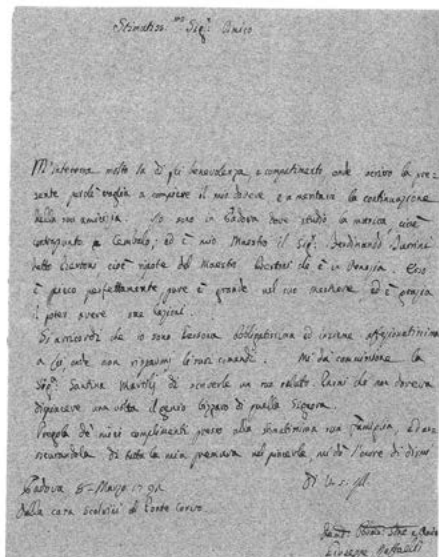 Stimatiss.mo Sig.r Amico
M'interessa molto la di Lei benevolenza, e compatimento, onde scrivo la pre-
sente perchè vaglia a compiere il mio dovere e a meritare la continuazione
della sua amicizia. Io sono in Padova dove studio la musica cioè
contrapunto e Cembalo; ed è mio Maestro il Sig.r Ferdinando
detto Bertoni cioè nipote del Maestro Bertoni che è in Venezia. Esso
è cieco perfettamente pure è grande nel suo mestiere ed è grazia
il poter avere sue lezioni.
Si ricordi che io sono Persona obbligatissima ed insieme affezionatissima
a Lei, onde non risparmi comandi. Mi dà commissione la
Sig.ra Santina di scriverle un suo saluto. Parmi che non doveva
dispiacere una volta il genio bizaro di quella Signora.
La prego de' miei complimenti presso alla stimatissima sua Famiglia, ed as-
sicurandola di tutta la mia premura nel piacerle, mi dò l'onore di dirmi
Padova 8 Marzo 1792 Di V. S. Ill.
Dalla casa Scolari in Ponte Corvo
Giuseppe